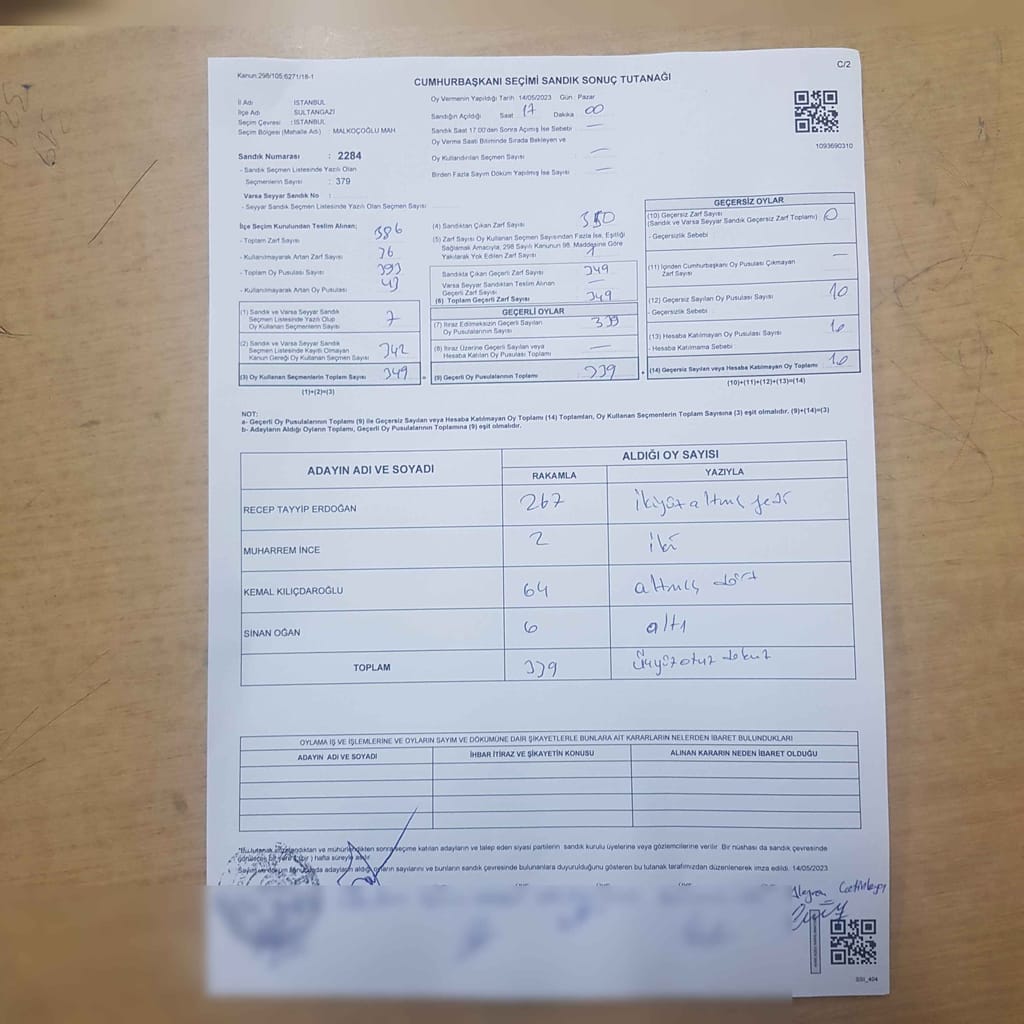 Kanun:298/105,6271/18-1
C/2
CUMHURBAŞKANI SEÇİMİ SANDIK SONUÇ TUTANAĞI
İl Adı : İSTANBUL
İlçe Adı : SULTANGAZİ
Seçim Çevresi : İSTANBUL
Seçim Bölgesi (Mahalle Adı) : MALKOÇOĞLU MAH
Sandık Numarası : 2284
- Sandık Seçmen Listesinde Yazılı Olan
Seçmenlerin Sayısı : 379
Varsa Seyyar Sandık No :
- Seyyar Sandık Seçmen Listesinde Yazılı Olan Seçmen Sayısı
Oy Vermenin Yapıldığı Tarih 14/05/2023 Gün : Pazar
Sandığın Açıldığı Saat 17 Dakika 00
Sandık Saat 17:00'dan Sonra Açımış İse Sebebi —
Oy Verme Saati Bitiminde Sırada Bekleyen ve
Oy Kullandırılan Seçmen Sayısı —
Birden Fazla Sayım Döküm Yapılmış İse Sayısı —
1093690310
İlçe Seçim Kurulundan Teslim Alınan;
- Toplam Zarf Sayısı 386
- Kullanılmayarak Artan Zarf Sayısı 36
- Toplam Oy Pusulası Sayısı 393
- Kullanılmayarak Artan Oy Pusulası 43
(1) Sandık ve Varsa Seyyar Sandık
Seçmen Listesinde Yazılı Olup
Oy Kullanan Seçmenlerin Sayısı 7
(2) Sandık ve Varsa Seyyar Sandık
Seçmen Listesinde Kayıtlı Olmayan
Kanun Gereği Oy Kullanan Seçmen Sayısı 342
(3) Oy Kullanan Seçmenlerin Toplam Sayısı 349
(1)+(2)=(3)
(4) Sandıktan Çıkan Zarf Sayısı 350
(5) Zarf Sayısı Oy Kullanan Seçmen Sayısından Fazla İse, Eşitliği
Sağlamak Amacıyla; 298 Sayılı Kanunun 98. Maddesine Göre
Yakılarak Yok Edilen Zarf Sayısı 1
Sandıkta Çıkan Geçerli Zarf Sayısı 349
Varsa Seyyar Sandıktan Teslim Alınan
Geçerli Zarf Sayısı —
(6) Toplam Geçerli Zarf Sayısı 349
GEÇERLİ OYLAR
(7) İtiraz Edilmeksizin Geçerli Sayılan
Oy Pusulalarının Sayısı 339
(8) İtiraz Üzerine Geçerli Sayılan veya
Hesaba Katılan Oy Pusulası Toplamı —
(9) Geçerli Oy Pusulalarının Toplamı 339
GEÇERSİZ OYLAR
(10) Geçersiz Zarf Sayısı 0
(Sandık ve Varsa Seyyar Sandık Geçersiz Zarf Toplamı)
- Geçersizlik Sebebi
(11) İçinden Cumhurbaşkanı Oy Pusulası Çıkmayan
Zarf Sayısı —
(12) Geçersiz Sayılan Oy Pusulası Sayısı 10
- Geçersizlik Sebebi
(13) Hesaba Katılmayan Oy Pusulası Sayısı 10
- Hesaba Katılmama Sebebi
(14) Geçersiz Sayılan veya Hesaba Katılmayan Oy Toplamı 10
(10)+(11)+(12)+(13)=(14)
NOT:
a- Geçerli Oy Pusulalarının Toplamı (9) ile Geçersiz Sayılan veya Hesaba Katılmayan Oy Toplamı (14) Toplamları, Oy Kullanan Seçmenlerin Toplam Sayısına (3) eşit olmalıdır. (9)+(14)=(3)
b- Adayların Aldığı Oyların Toplamı, Geçerli Oy Pusulalarının Toplamına (9) eşit olmalıdır.
ADAYIN ADI VE SOYADI
ALDIĞI OY SAYISI
RAKAMLA YAZIYLA
RECEP TAYYİP ERDOĞAN 267 ikiyüzaltmış yedi
MUHARREM İNCE 2 iki
KEMAL KILIÇDAROĞLU 64 altmış dört
SİNAN OĞAN 6 altı
TOPLAM 339 üçyüzotuz dokuz
OYLAMA İŞ VE İŞLEMLERİNE VE OYLARIN SAYIM VE DÖKÜMÜNE DAİR ŞİKAYETLERLE BUNLARA AİT KARARLARIN NELERDEN İBARET BULUNDUKLARI
ADAYIN ADI VE SOYADI İHBAR İTİRAZ VE ŞİKAYETİN KONUSU ALINAN KARARIN NEDEN İBARET OLDUĞU
*Bu tutanak imzalandıktan ve mühürlendikten sonra seçime katılan adayların ve talep eden siyasi partilerin sandık kurulu üyelerine veya gözlemcilerine verilir. Bir nüshası da sandık çevresinde
görülecek bir yere ( bir ) hafta süreyle asılır.
Sayım ve döküm sonucunda adayların aldığı oyların sayılarını ve bunların sandık çevresinde bulunanlara duyurulduğunu gösteren bu tutanak tarafımızdan düzenlenerek imza edildi. 14/05/2023
SSI_404